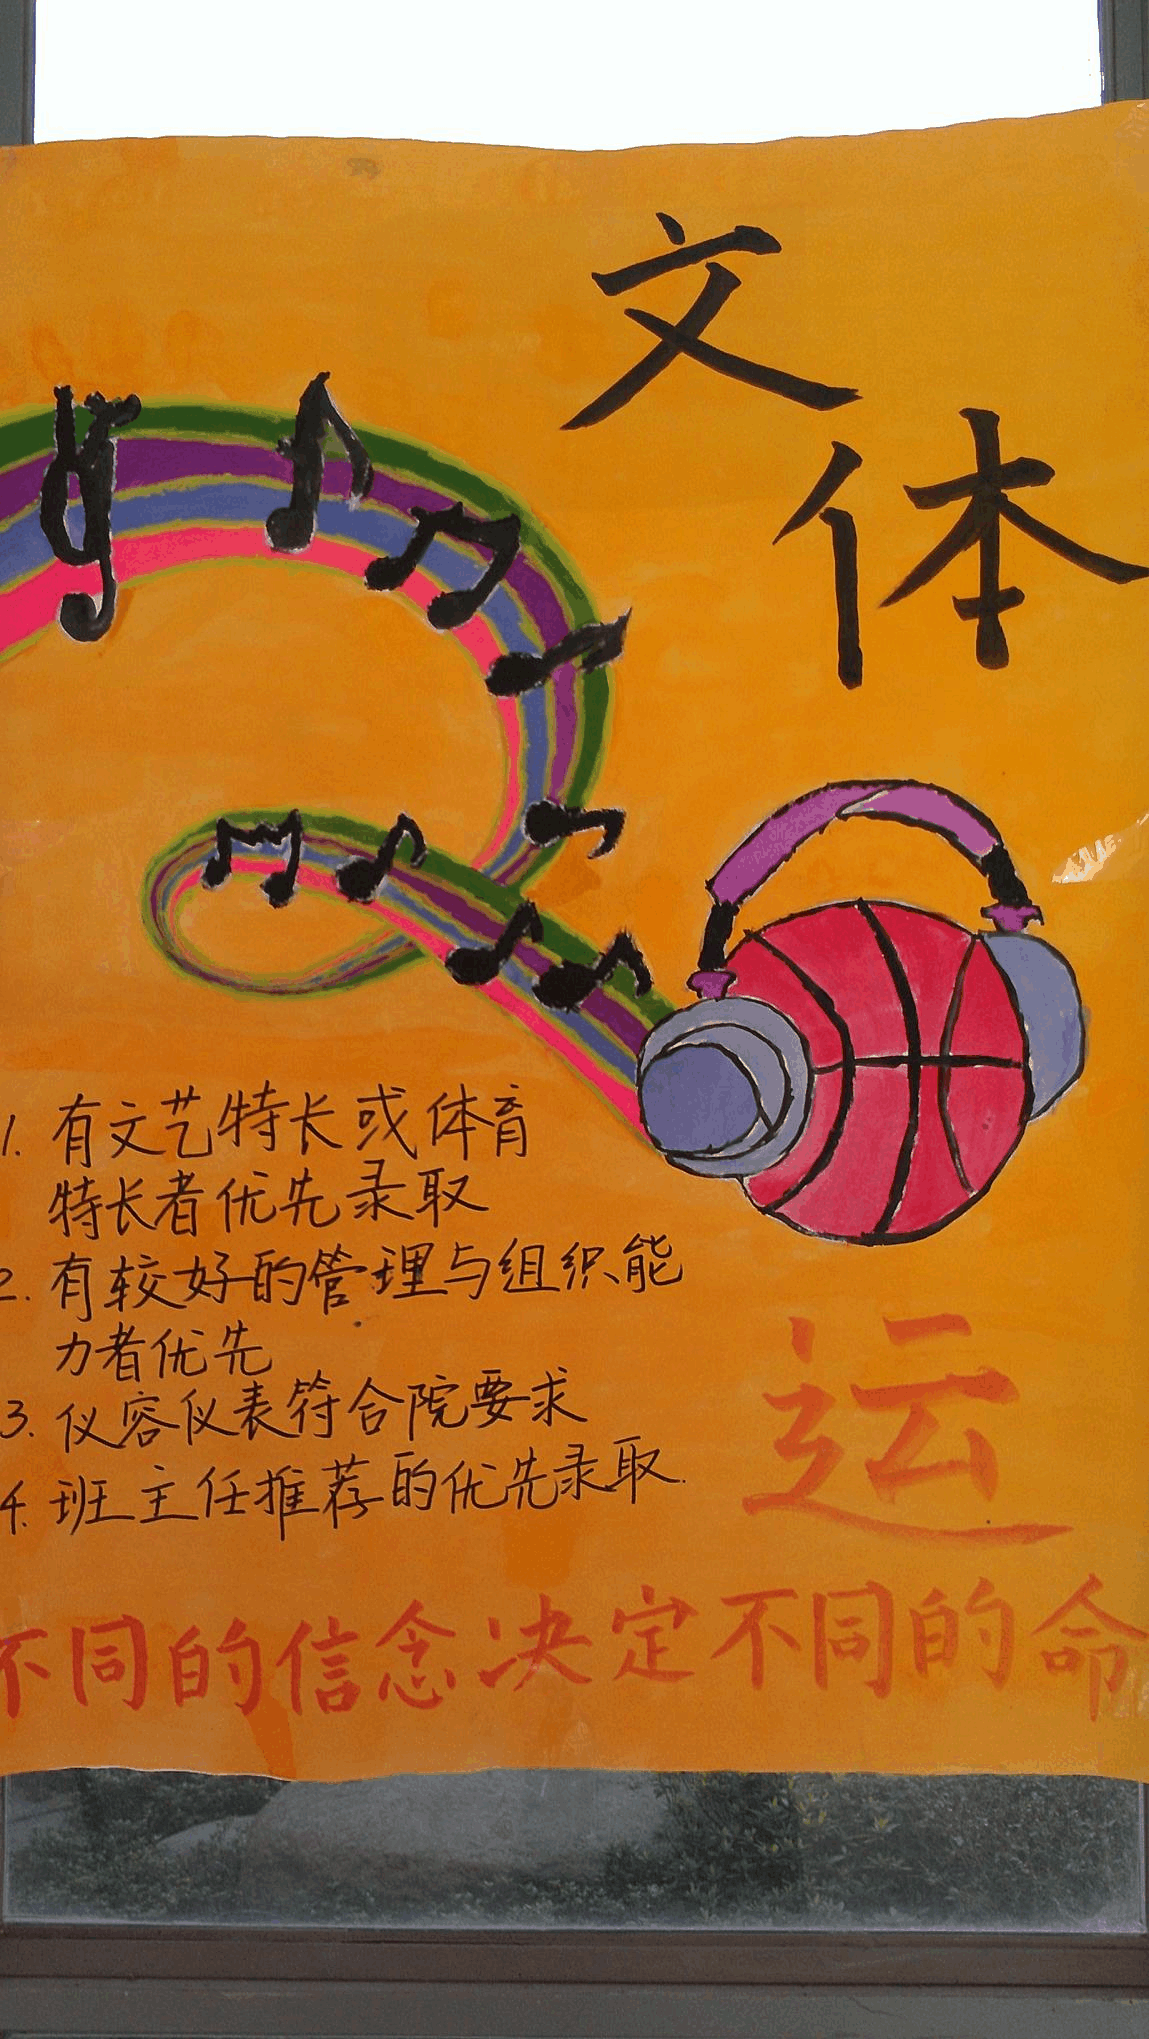 文
体
1. 有文艺特长或体育
特长者优先录取
2. 有较好的管理与组织能
力者优先
3. 仪容仪表符合院要求
4. 班主任推荐的优先录取.
运
不同的信念决定不同的命